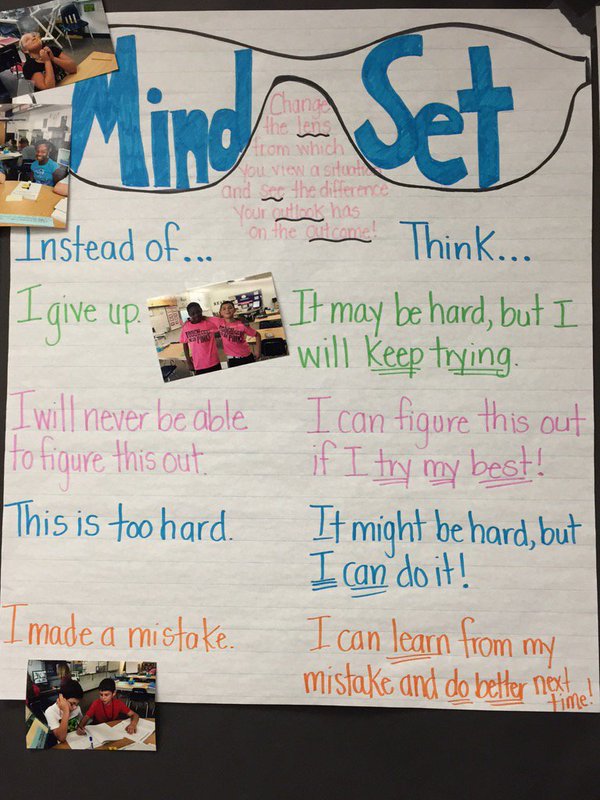 Mind Set
Change
the lens
from which
you view a situation
and see the difference
your outlook has
on the outcome!
Instead of...
Think...
I give up.
It may be hard, but I
will keep trying.
I will never be able
to figure this out.
I can figure this out
if I try my best!
This is too hard.
It might be hard, but
I can do it!
I made a mistake.
I can learn from my
mistake and do better next
time!